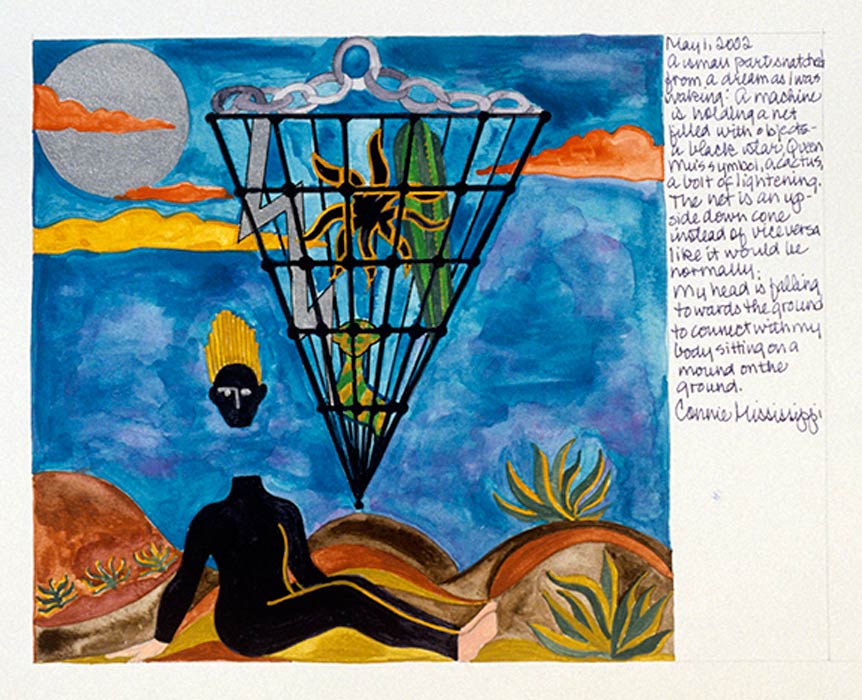 May 1, 2002
A small part snatched
from a dream as I was
waking: A machine
is holding a net
filled with objects-
a black star, Queen
Mu's symbol, a cactus,
a bolt of lightening.
The net is an up-
side down cone
instead of vice versa
like it would be
normally.
My head is falling
towards the ground
to connect with my
body sitting on a
mound on the
ground.
Connie Mississippi